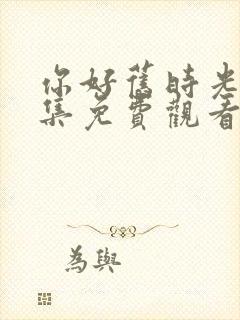 你好舊時光
集免費觀看
為與